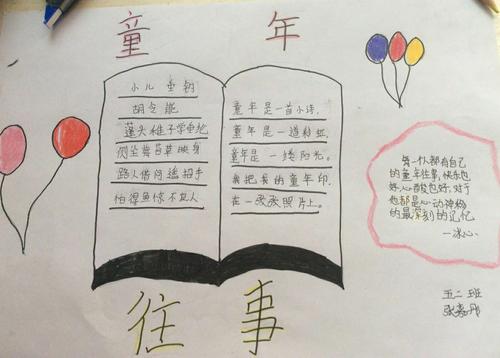 童年
小儿垂钓
胡令能
蓬头稚子学垂纶
侧坐莓苔草映身
路人借问遥招手
怕得鱼惊不应人
童年是一首小诗,
童年是一道彩虹,
童年是一缕阳光。
我把我的童年印
在一张张照片上。
每一个人都有自己
的童年往事,快乐也
好,心酸也好,对于
他都是心动神移
的最深刻的记忆
—冰心
往事
五二班